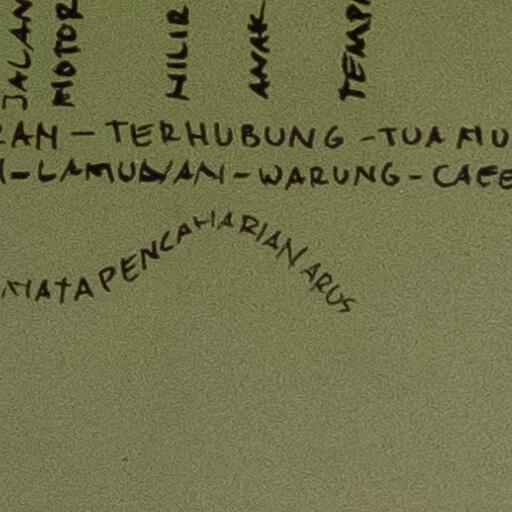 JALAN
MOTOR
HILIR
ANAK
TERHUBUNG - TUA
- LAMUNAN - WARUNG - CAFE
MATA PENCAHARIAN ARUS